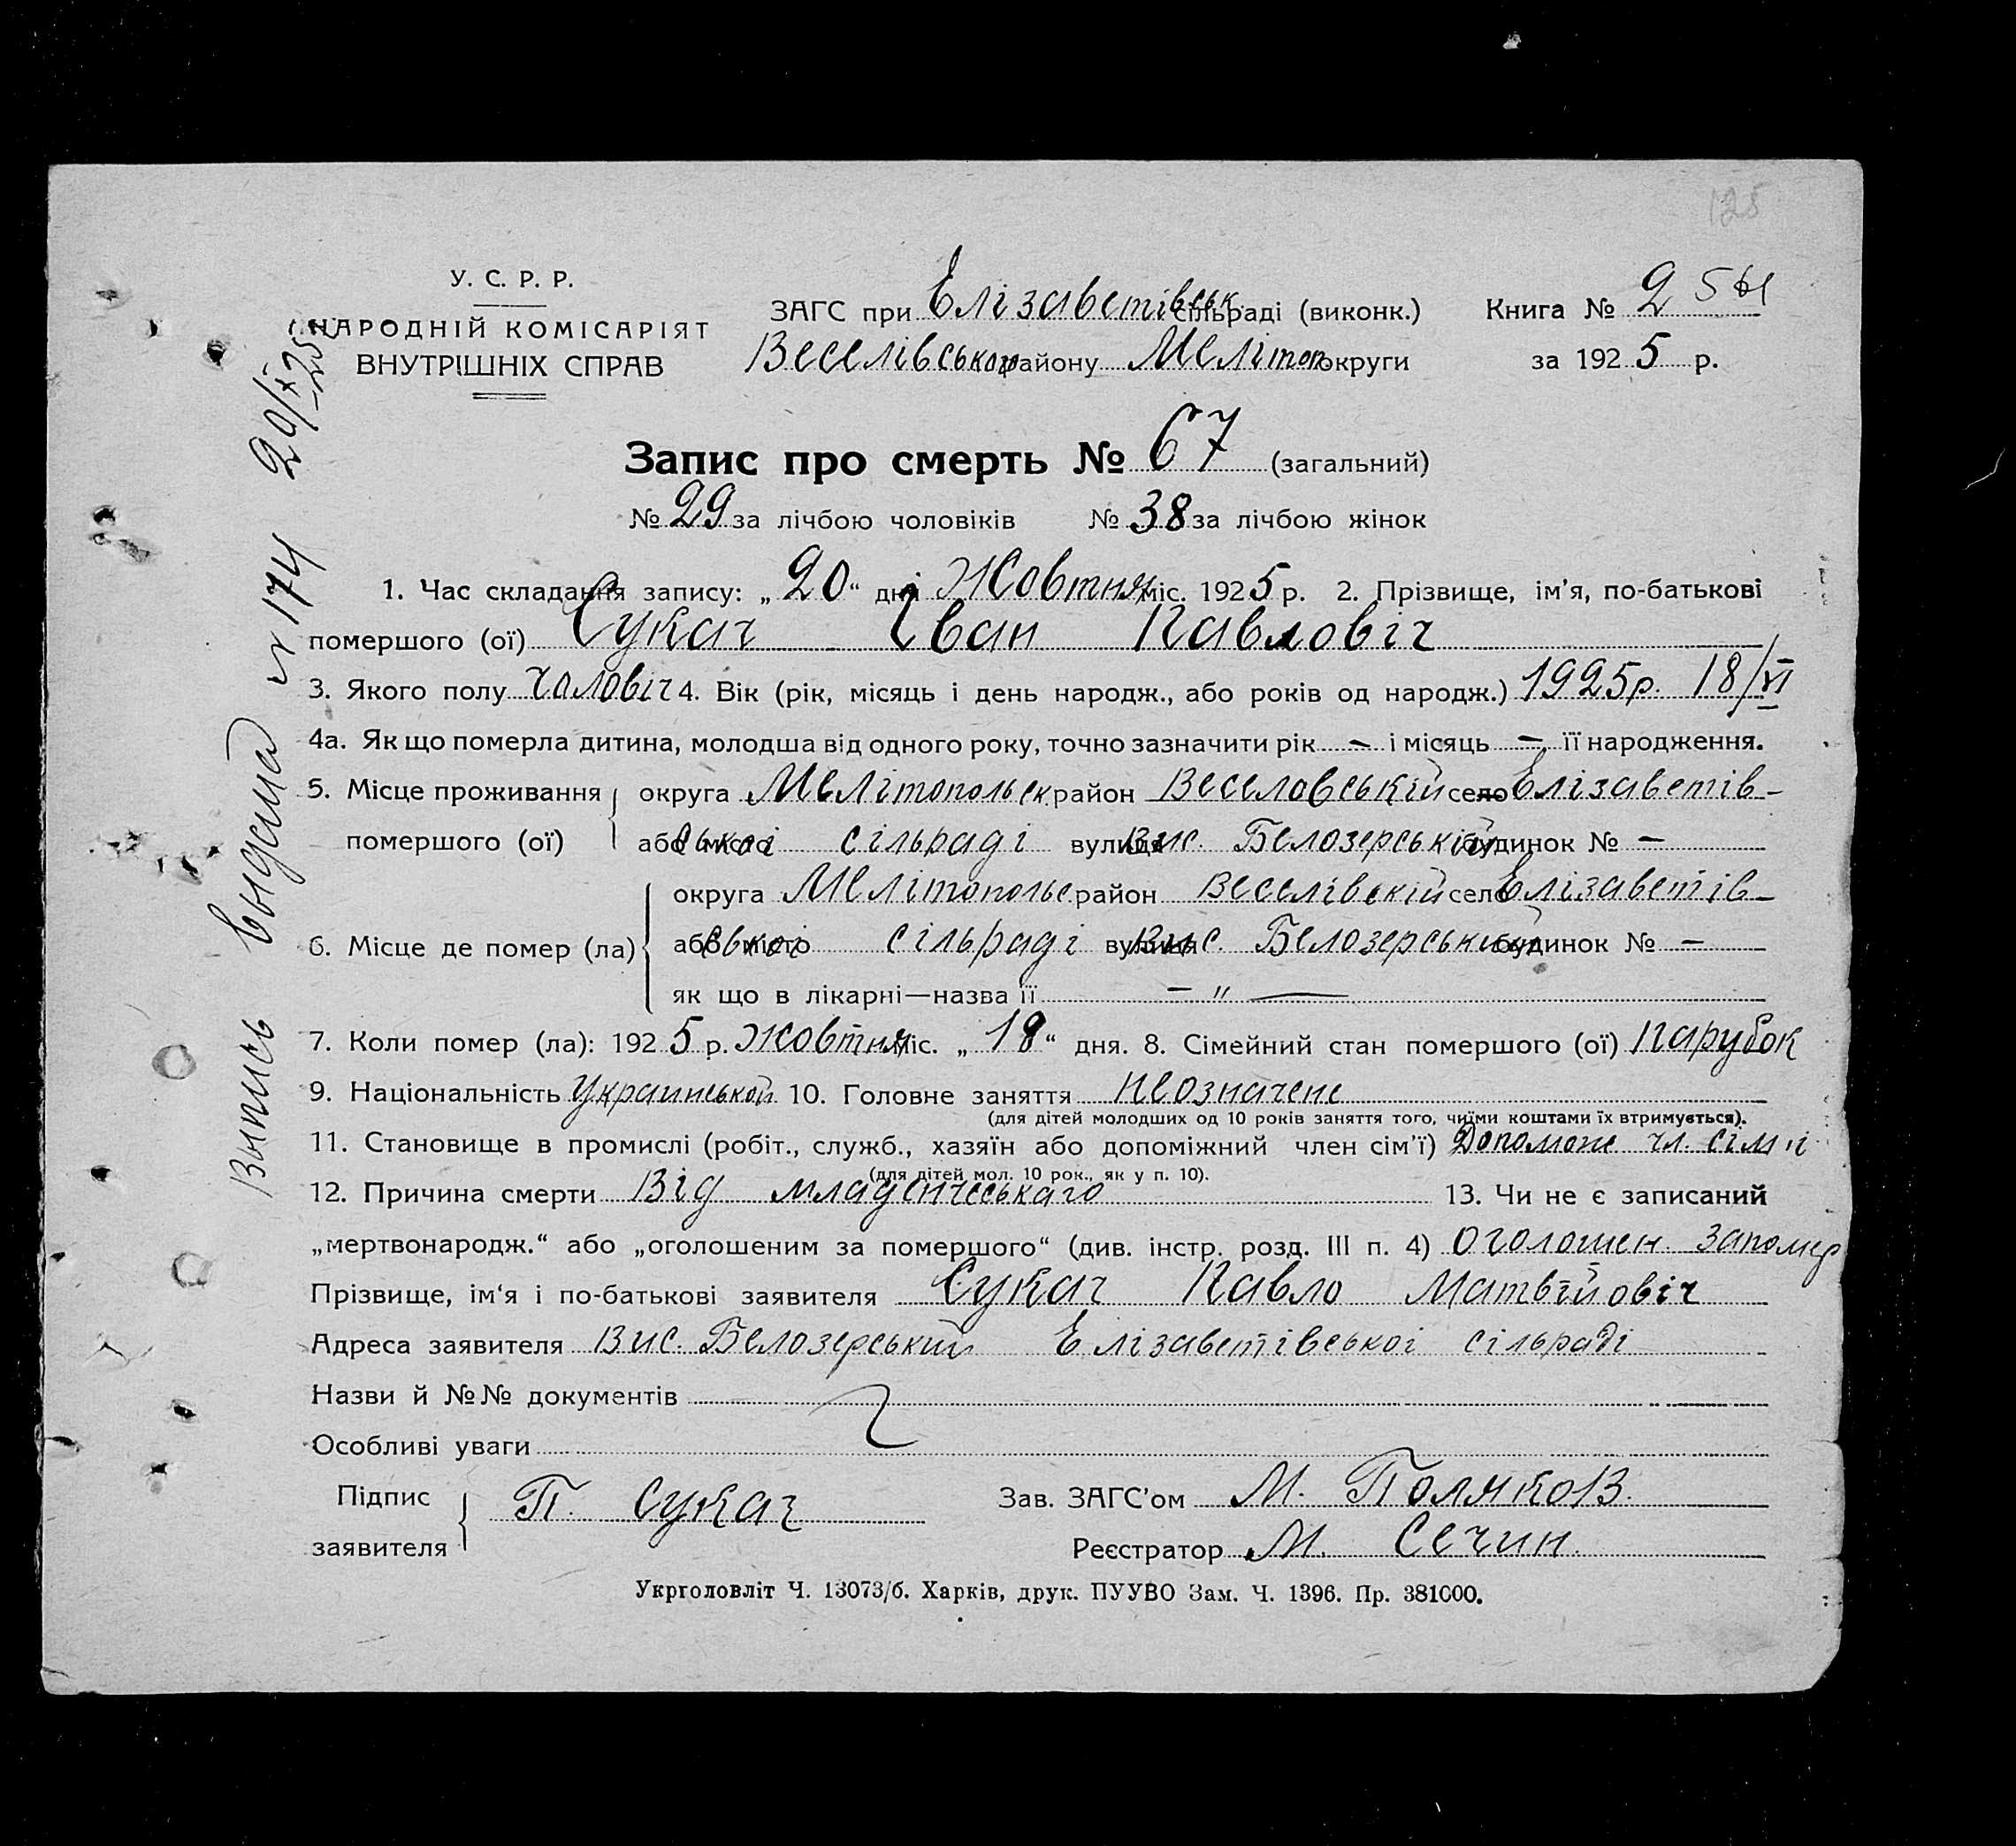 125
У. С. Р. Р.
НАРОДНІЙ КОМІСАРІЯТ
ВНУТРІШНІХ СПРАВ
ЗАГС при Елізаветівськ. сільраді (виконк.)
Веселівськом району Мелітоп округи
Книга № 2
за 1925 р.
Запис про смерть № 67 (загальний)
№ 29 за лічбою чоловіків № 38 за лічбою жінок
1. Час складання запису: „20“ дні Жовтня міс. 1925 р. 2. Прізвище, ім’я, по-батькові
помершого (ої) Сукач Іван Павловіч
3. Якого полу чоловіч 4. Вік (рік, місяць і день народж., або років од народж.) 1925р. 18/VI
4а. Як що померла дитина, молодша від одного року, точно зазначити рік — і місяць — її народження.
5. Місце проживання помершого (ої) округа Мелітопольск район Веселовській село Елізаветів-
або місто ської сільраді вулиця Вис. Белозерській будинок № —
6. Місце де помер (ла) округа Мелітопольс район Веселівскій село Елізаветів-
або місто ської сільраді вулиця Вис. Белозерський будинок № —
як що в лікарні—назва її — " —
7. Коли помер (ла): 1925 р. Жовтня міс. „18“ дня. 8. Сімейний стан помершого (ої) Парубок
9. Національність Украинськой 10. Головне заняття Неозначене
(для дітей молодших од 10 років заняття того, чиїми коштами їх втримується).
11. Становище в промислі (робіт., служб., хазяїн або допоміжний член сім’ї) Допомож чл. сімʼі
(для дітей мол. 10 рок., як у п. 10).
12. Причина смерти Від младенчеськаго 13. Чи не є записаний
„мертвонародж.“ або „оголошеним за помершого“ (див. інстр. розд. III п. 4) Оголошен. за помер
Прізвище, ім‘я і по-батькові заявителя Сукач Павло Матвійовіч
Адреса заявителя Вис. Белозерський Елізаветівської сільраді
Назви й №№ документів
Особливі уваги
Підпис заявителя П. Сукач
Зав. ЗАГС’ом М. Поляков.
Реєстратор М. Сечин.
Укрголовліт Ч. 13073/б. Харків, друк. ПУУВО Зам. Ч. 1396. Пр. 381000.
Випись выдана № 174 20/X 25